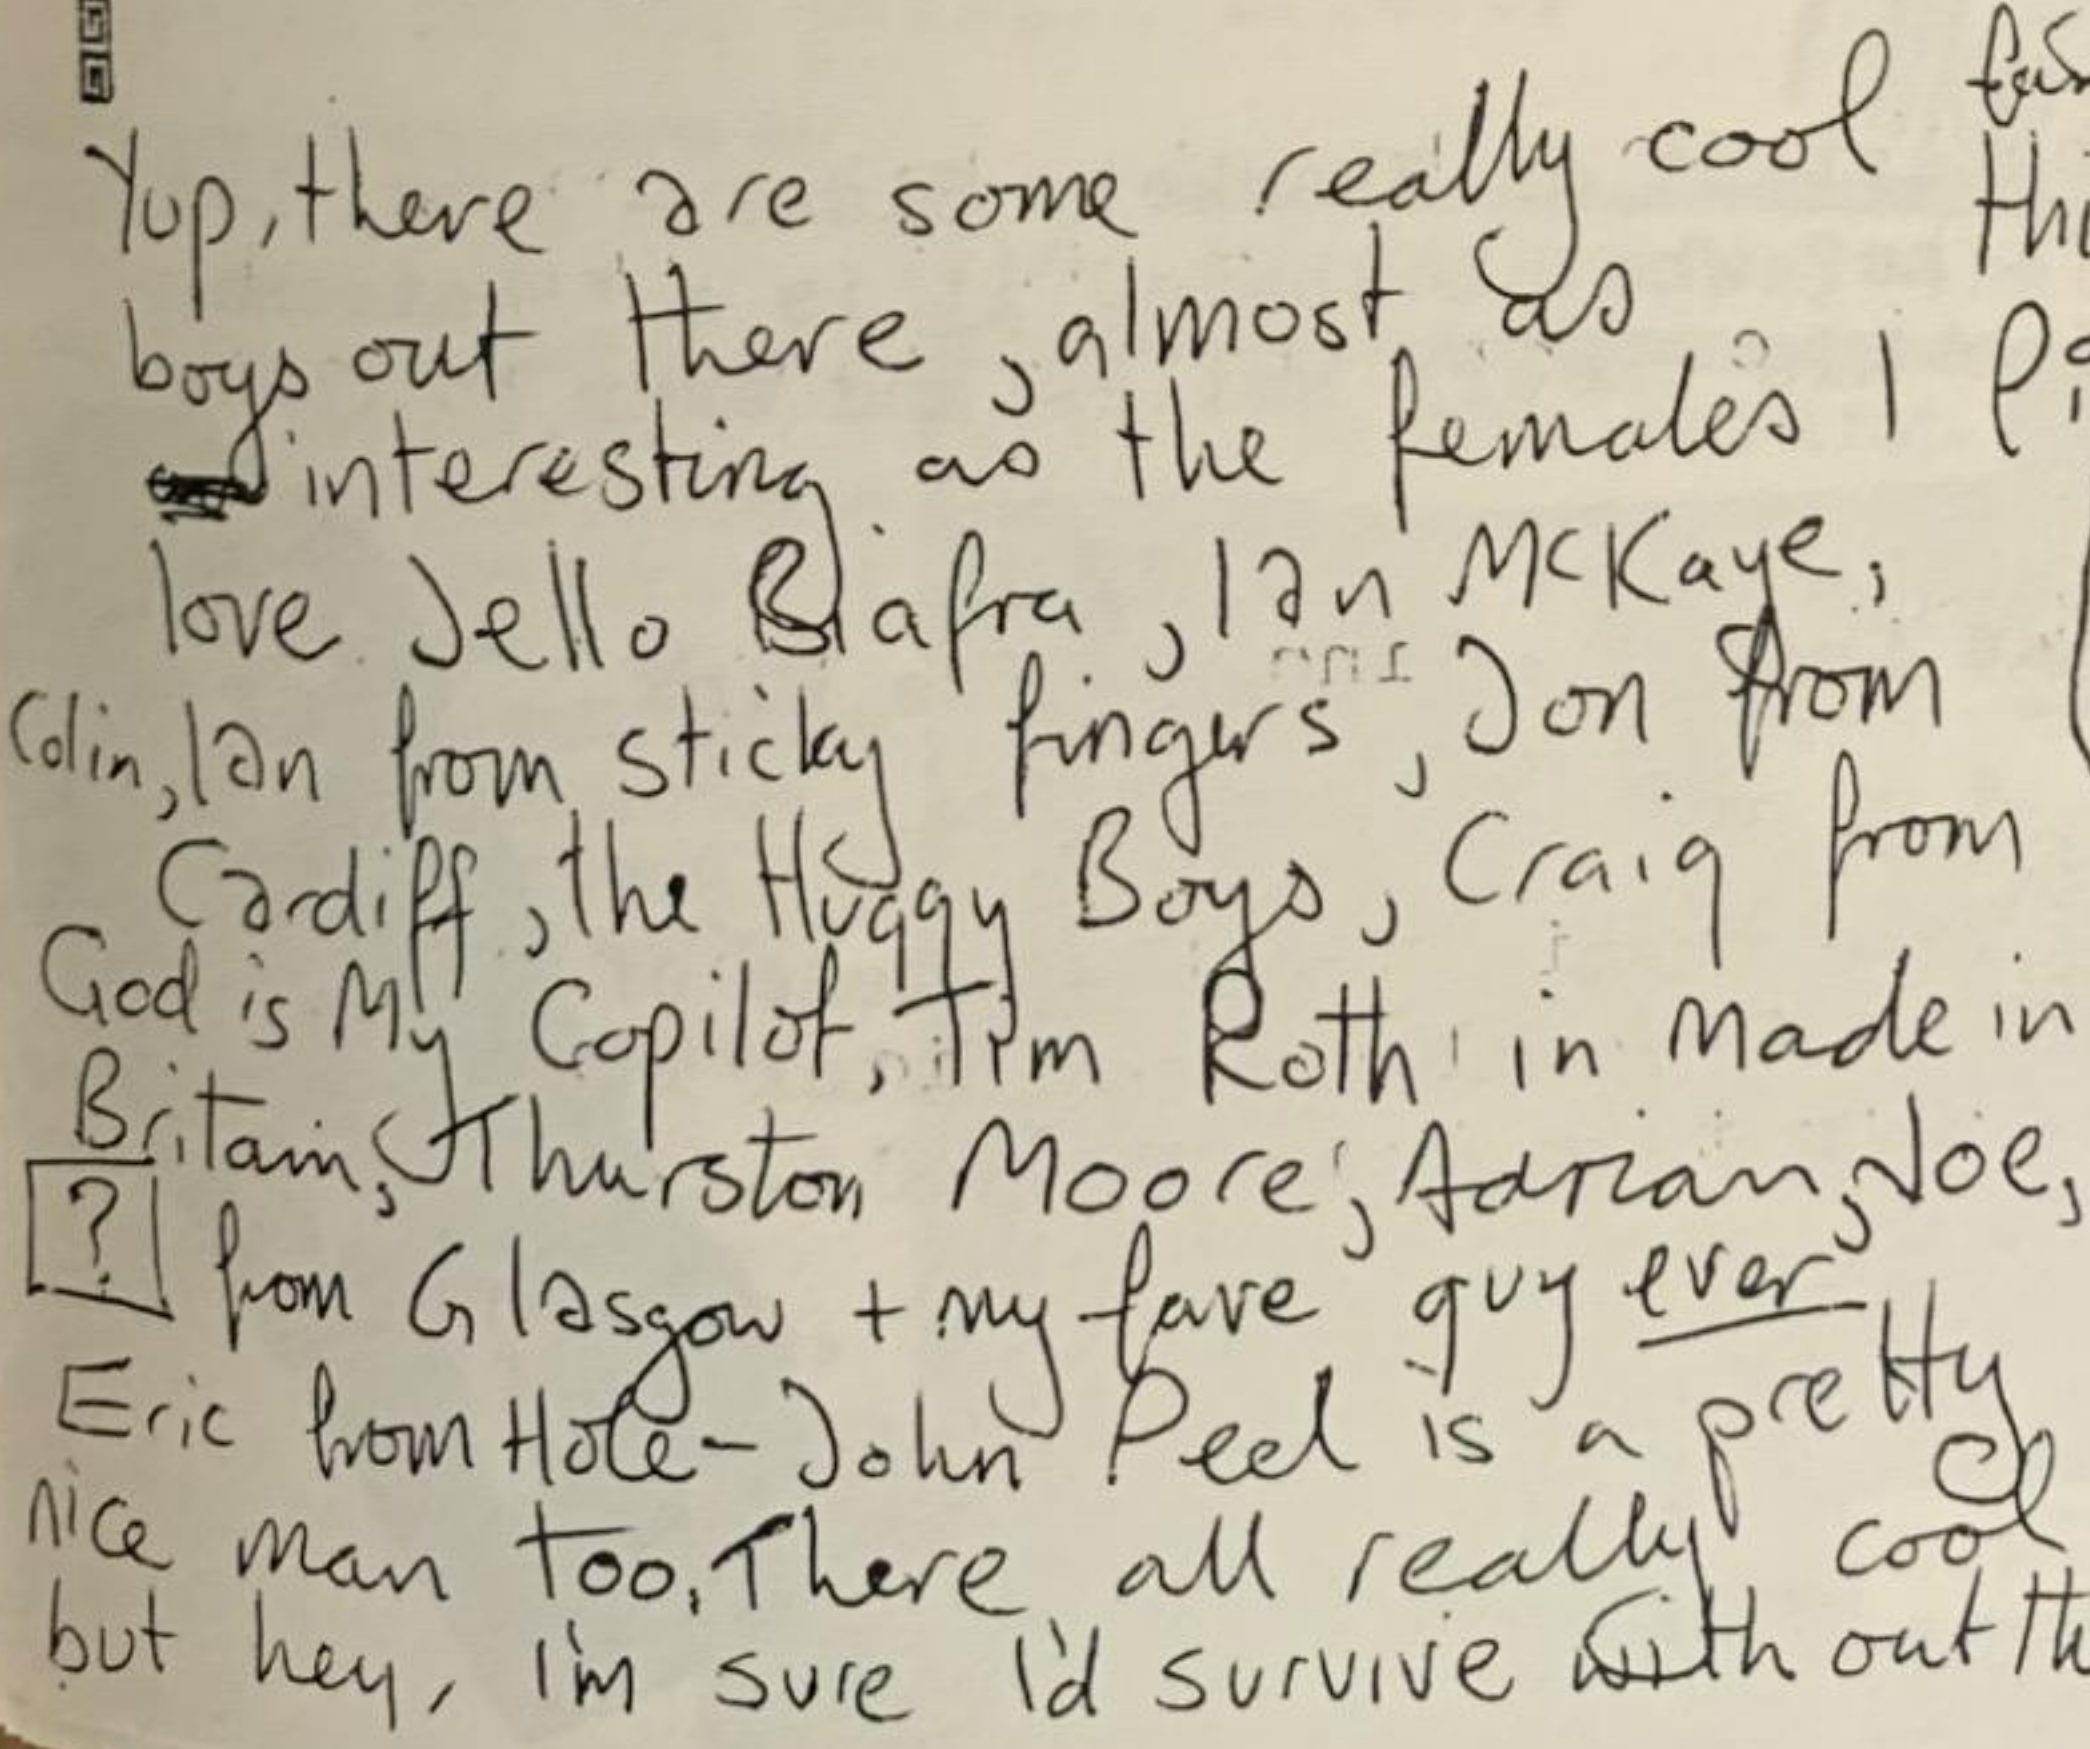 Yup, there are some really cool
boys out there, almost as
interesting as the females I
love Jello Biafra, Ian McKaye,
Colin, Ian from sticky fingers, Jon from
Cardiff, the Huggy Boys, Craig from
God is My Copilot, Tim Roth in Made in
Britain, Thurston Moore, Adrian, Joe,
? from Glasgow + my fave guy ever
Eric from Hole - John Peel is a pretty
nice man too. There all really cool
but hey, i'm sure I'd survive without